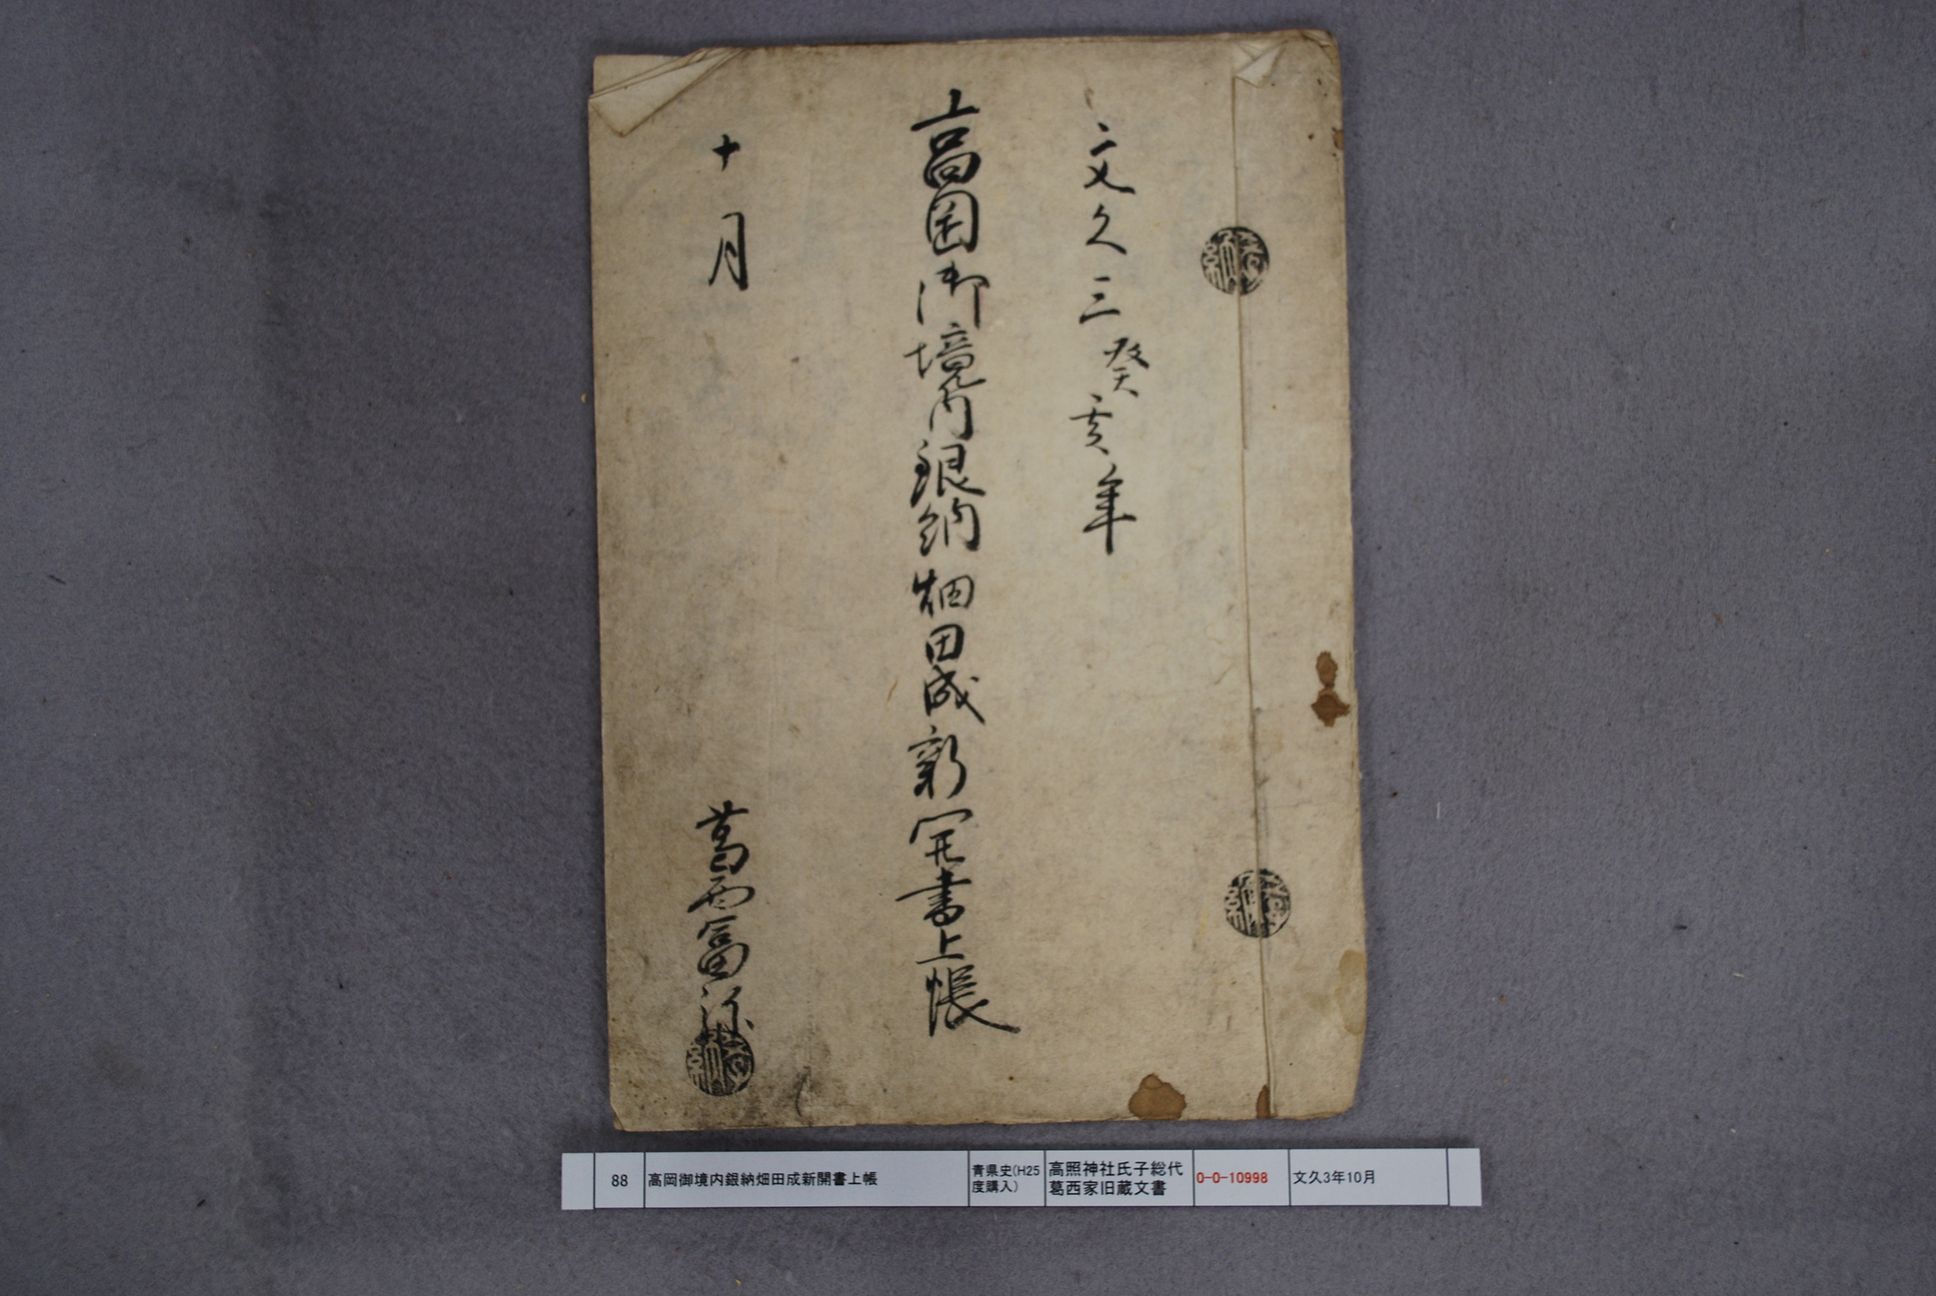 文久三癸亥年
高岡御境内銀納畑田成新開書上帳
十月
葛西富弥
88
高岡御境内銀納畑田成新開書上帳
青県史(H25
度購入)
高照神社氏子総代
葛西家旧蔵文書
0-0-10998
文久3年10月